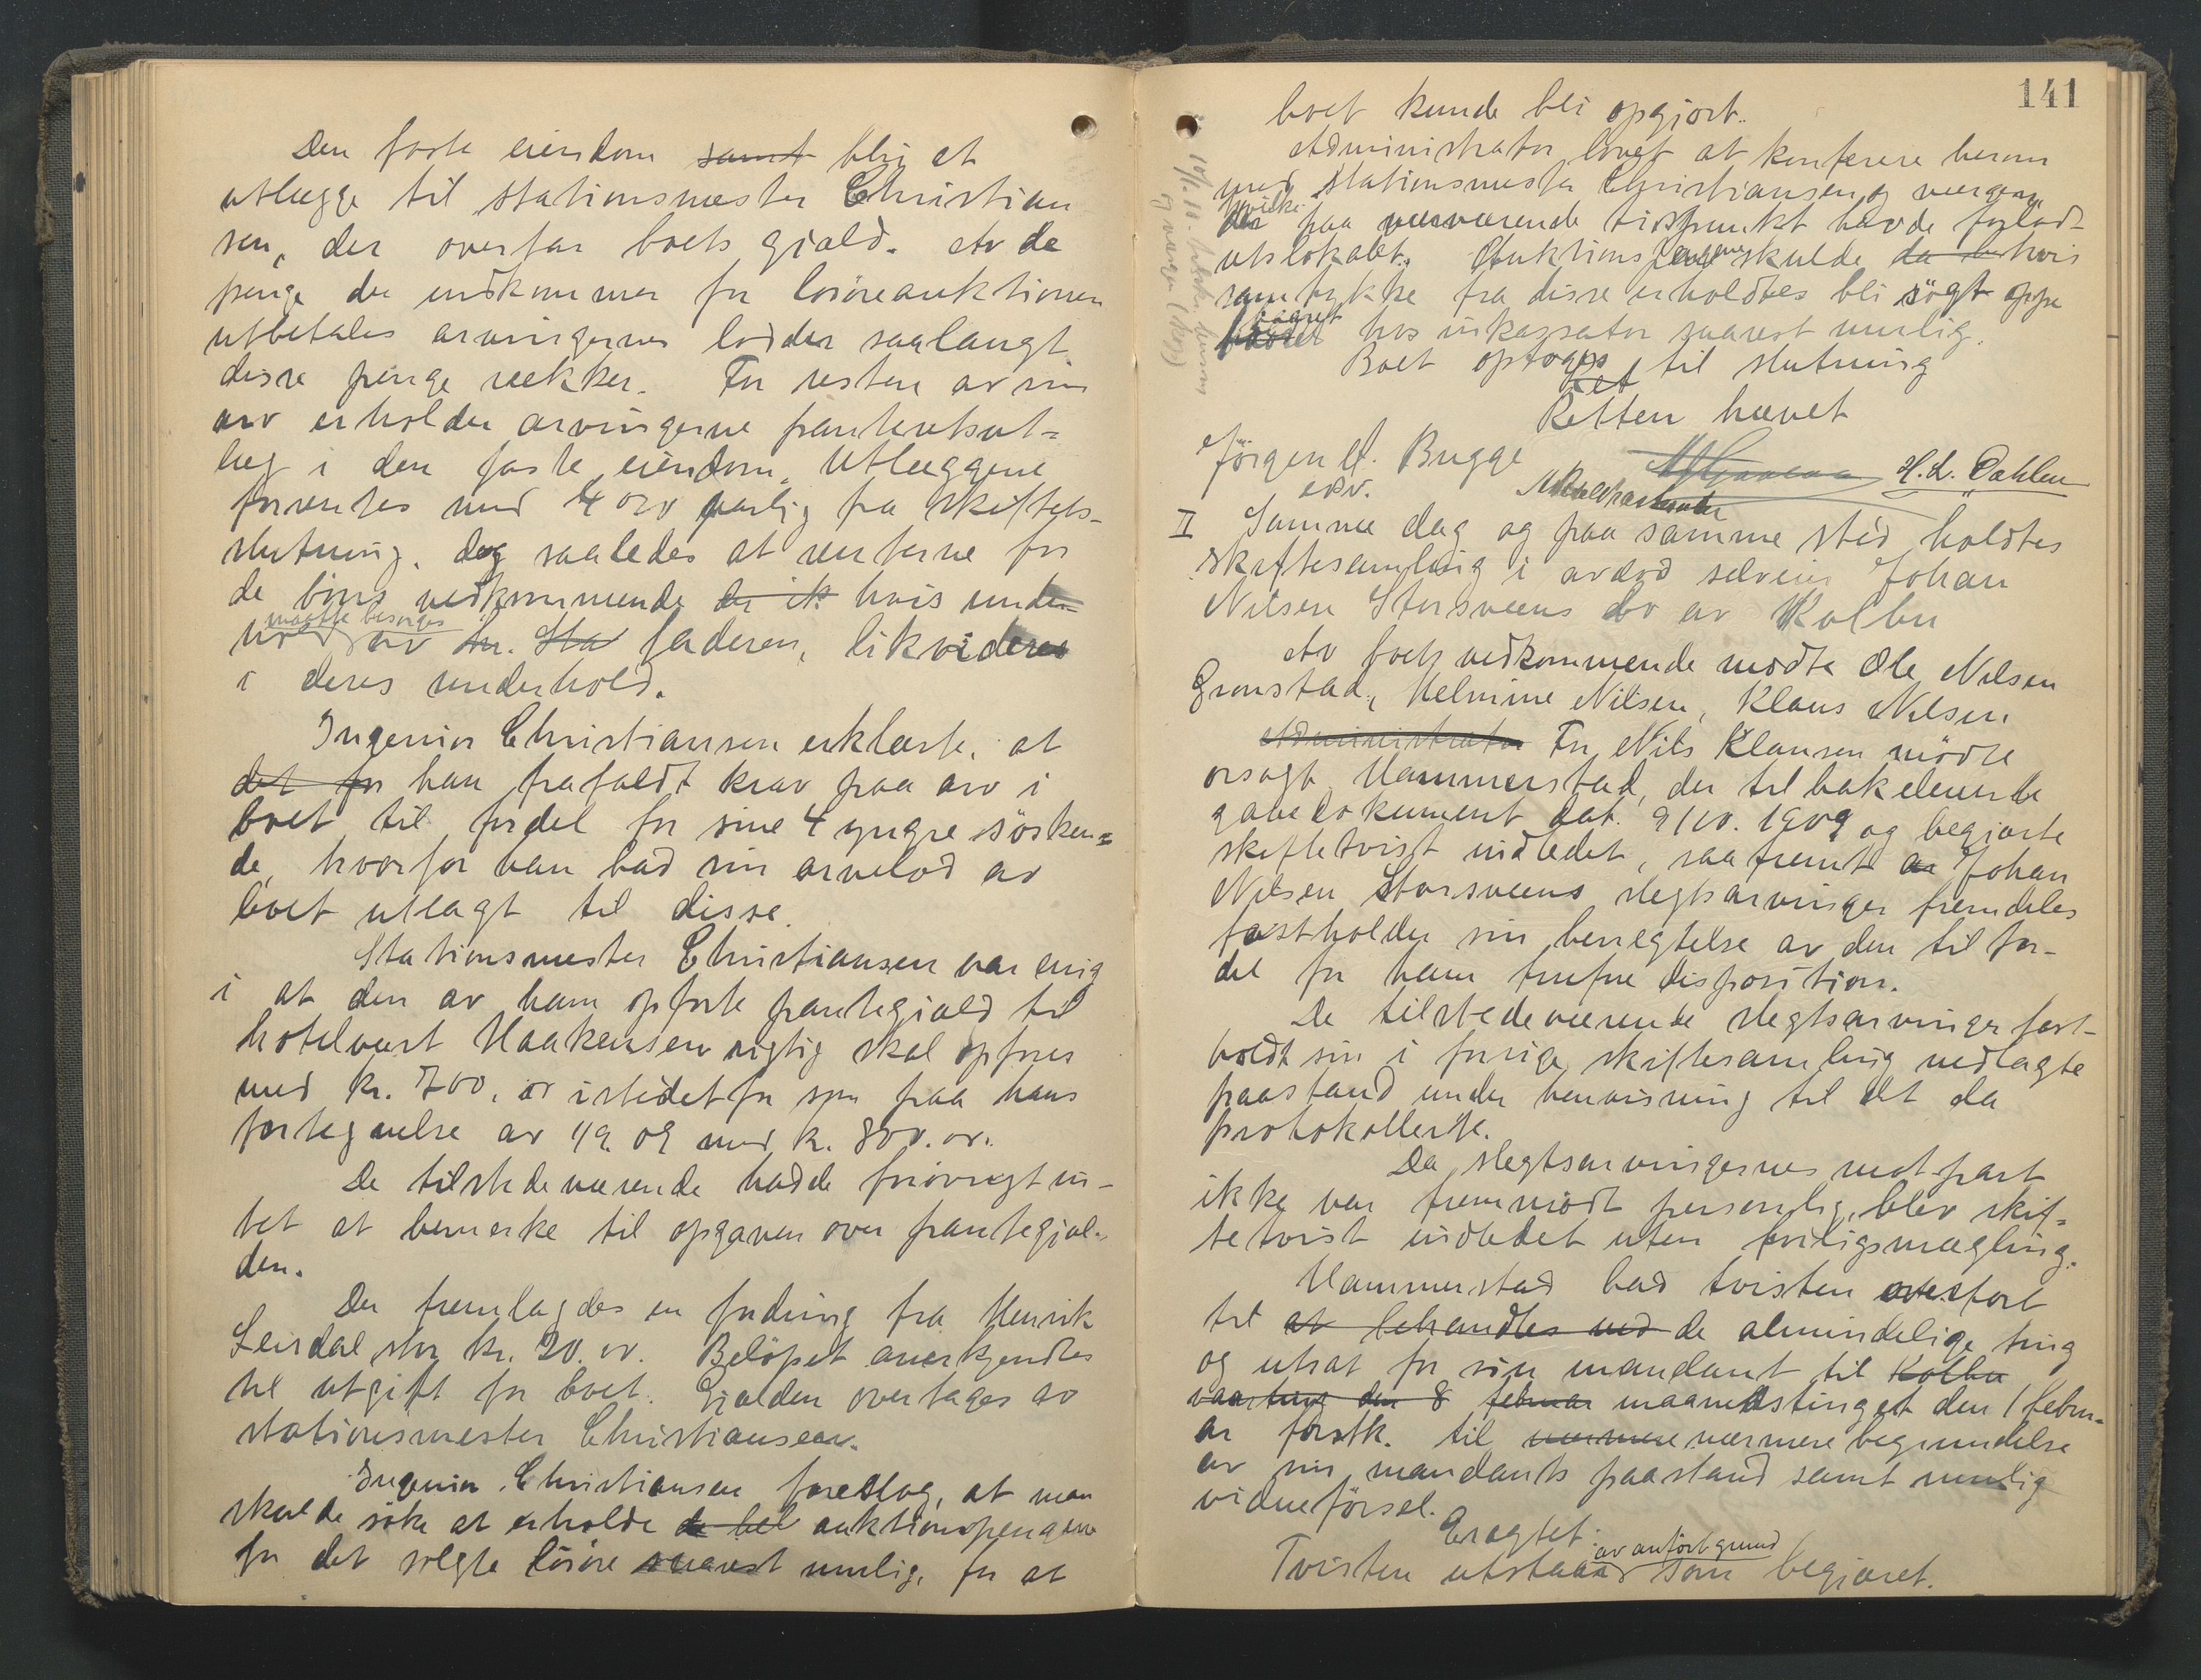 Den faste eiendom samt blir at
utlægge til stationsmester Christian
sen, der overtar boets gjæld. Av de
penge der indkommer for løsøreauktionen
utbetales arvingernes lodder saalangt
disse penge rækker. For resten av sin
arv erholder arvingerne panteutsut=
læg i den faste eiendom, Utlæggene
forrentes med 4 o/o aarlig fra skiftets-
slutning, dog saaledes at renterne for
de børns vedkommende der ik hvis under=
maatte besørges
hold av hr. Sta faderen, likvideres
i deres underhold.
Ingeniør Christiansen erklærte, at
det for han frafaldt krav paa arv i
boet til fordel for sine 4 yngre søsken=
de, hvorfor han bad sin arvelod av
boet utlagt til disse.
Stationsmester Christiansen var enig
i at den av ham opførte pantegjæld til
hotelvært Haakensen rigtig skal opføres
med kr. 700, or istedetfor som paa hans
fortegnelse av 1/9. 09 med kr. 800. or.
De tilstedeværende hadde forøvrigt in-
tet at bemerke til opgaven over pantegjæl-
den.
Der fremlagdes en fordring fra Henrik
Leirdal stor kr. 20. or. Beløpet anerkjendtes
til utgift for boet. Gjælden overtages av
stationsmester Christiansen.
Ingeniør Christiansen foreslog, at man
skulde søke at erholde de bel auktionspengene
for det solgte løsøre snarest mulig, for at
141
boet kunde bli opgjort.
Administrator lovet at konferere herom
med stationsmester Christiansen og vergen,
hvilke
der paa nærværende tidspunkt havde forlad-
utslokalet. Auktionspengene skulde da hvis
samtykke fra disse erholdtes bli søgt oppe
baaret hos inkassator snarest mulig.
Boet optoges til slutning
Ret
Retten hævet
Jørgen A. Bugge H. L. Dahlen
edv.
II Samme dag og paa samme sted holdtes
skiftesamling i avdød selveier Johan
Nilsen Storsveens bo av Kolbu
Av boets vedkommende mødte Ole Nilsen
Grønstad, Helmine Nilsen, Klaus Nilsen
Administrator For Nils Klausen mødte
orsagf. Hammerstad, der tilbakeleverte
gavedokument dat. 9/10. 1909 og begjærte
skiftetvist indledet, saafremt av Johan
Nilsen Storsveens slegtsarvinger fremdeles
fastholder sin benegtelse av den til for-
del for ham trufne disposition.
De tilstedeværende slegtsarvinger fast-
holdt sin i forrige skiftesamling nedlagte
paastand under henvisning til det da
protokollerte.
Da slegtsarvingernes motpart
ikke var fremmødt personlig, blev skif=
tetvist indledet uten forligsmægling.
Hammerstad bad tvisten overført
til at behandles ved de almindelige ting
og utsat for sin mandant til Kolbu
vaarting den 8 februar maanedstinget den 1 febru=
ar førstk. til nærmere nærmere begrundelse
av sin mandants paastand samt mulig
vidneførsel.
Eragtet:
av anført grund
Tvisten utstaar som begjæret.